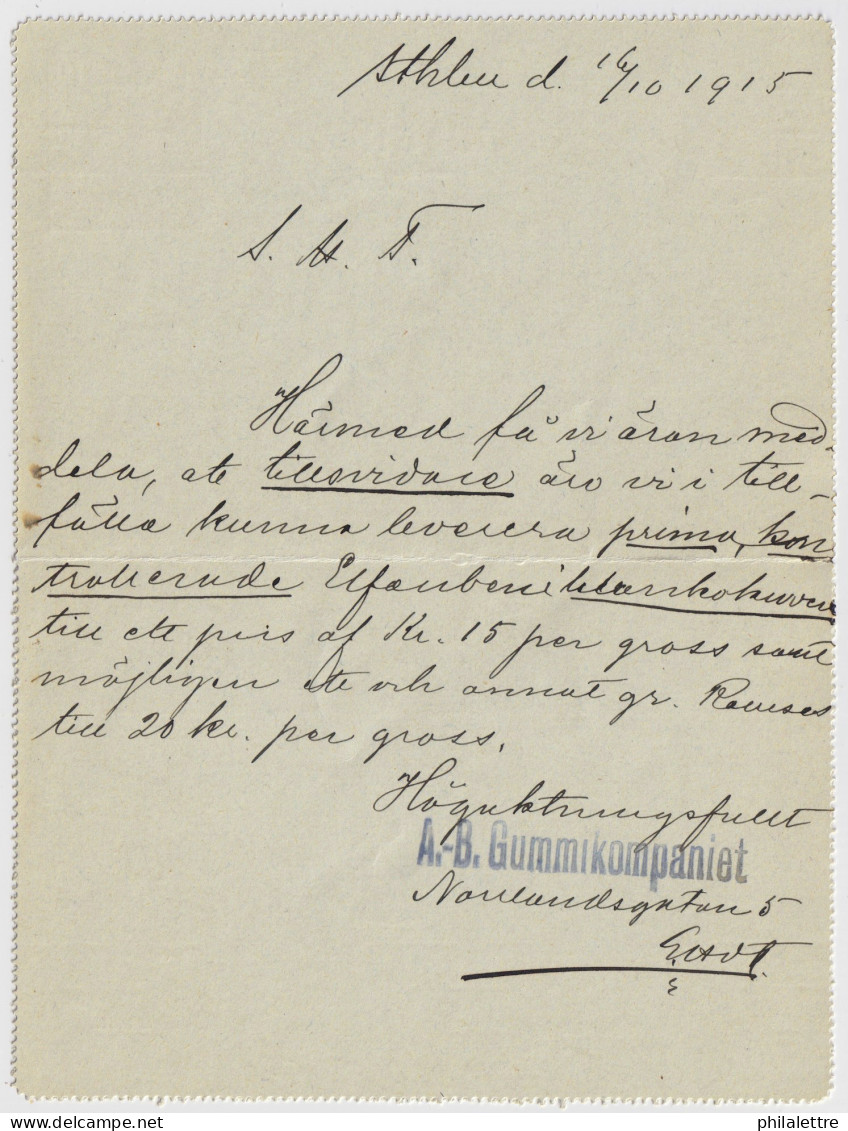 Sthlm d. 16/10 1915
S. H. T.
Härmed få vi äran med-
dela, att tillsvidare äro vi i till-
fälle kunna leverera prima, kon-
trollerade Elfenbens
till ett pris af Kr. 15 per gross samt
möjligen ett och annat gr. Ramses
till 20 kr. per gross.
Högaktningsfullt
A.-B. Gummikompaniet
Norrlandsgatan 5
philalettre